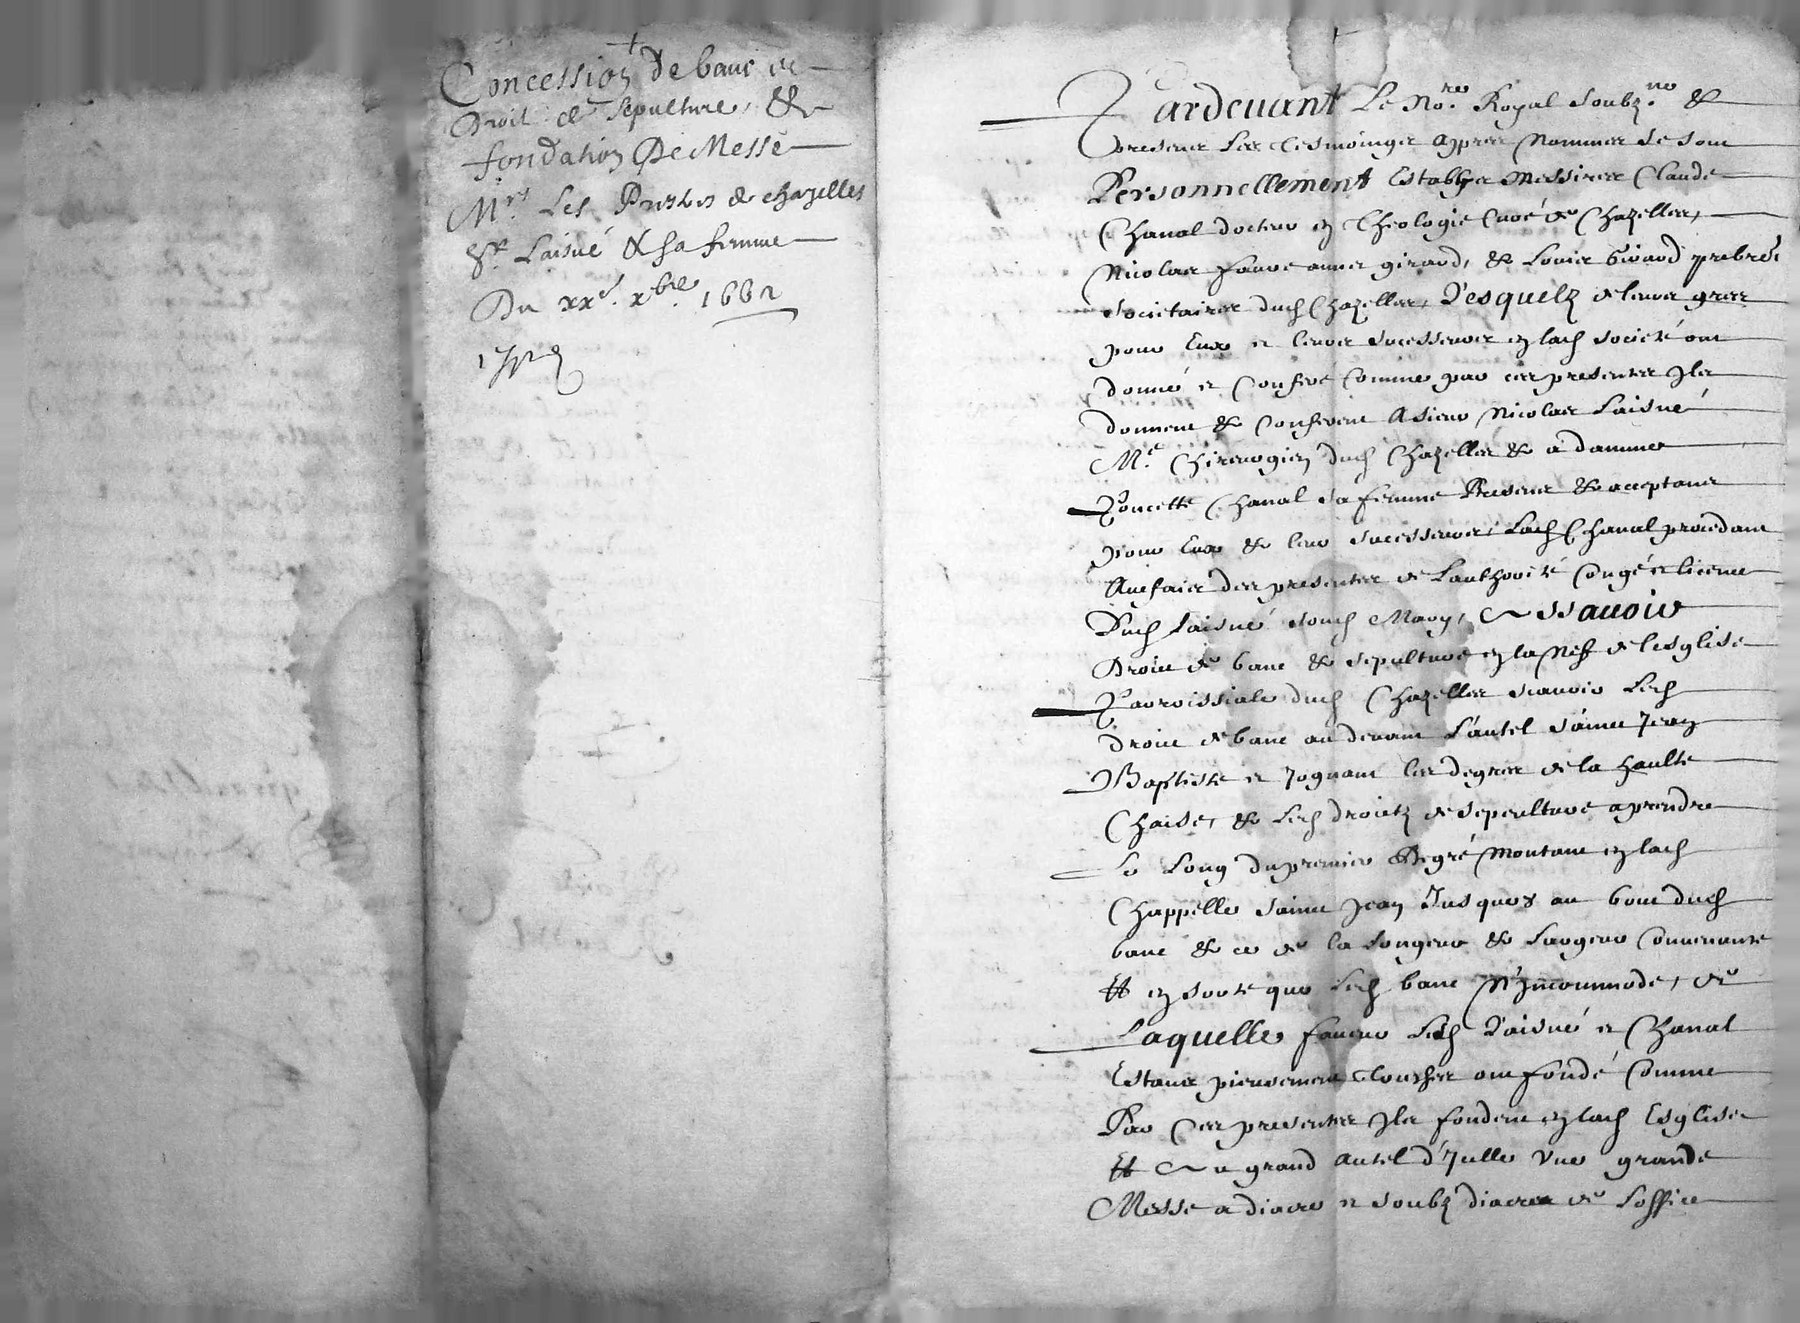 Concession de banc et
Droit de sepulture, &
fondation De Messe
Mrs. Les Presbres de chazelles
Sr. Laisné & sa femme
Du xxe. xbre. 1662
Pardevant Le Nore. Royal soubzne. &
presens Les tesmoings appres Nommes se sont
Personnellement Establys Messires Claude
Chanal docteur en Theologie Curé de Chazelles,
Nicolas faure annes girard, & Louis Girard prebres
Societaires dud Chazelles, Lesquelz de leurs gres
pour Eux et leurs successeurs en lad societé ont
donné et Conferé Comme par ces presentes Ils
donnent & Conferent A sieur Nicolas Laisné
Me. Chirurgien dud Chazelles & a damme
Poncette Chanal sa femme Presens & acceptans
pour Eux & leur successeurs, Lad Chanal procedant
Aux faict des presentes de Lauthorité Congé et licence
Dud Laisné sond Mary, Assavoir
Droict de banc & sepulture en la Nef de lesglise
Parroissiale dud Chazelles scavoir Led
droict de banc au devant Lautel sainct Jean
Baptiste et Jognant les degres de la haulte
Chaise, & Led droictz de sepculture a prendre
Le Long du premier Degré Montant en lad
Chappelle sainct Jean Jusques au bout dud
banc & ce de la Longeur & Largeur Convenante
Et en sorte que Led banc N'Jncommode, de
Laquelle faveur Led Laisné et Chanal
Estans pieusement Touches ont fondé Comme
Par Ces presentes Ils fondent en lad Esglise
Et Au grand Autel d'Jcelle Une grande
Messe a diacre et soubz diacre de Loffice